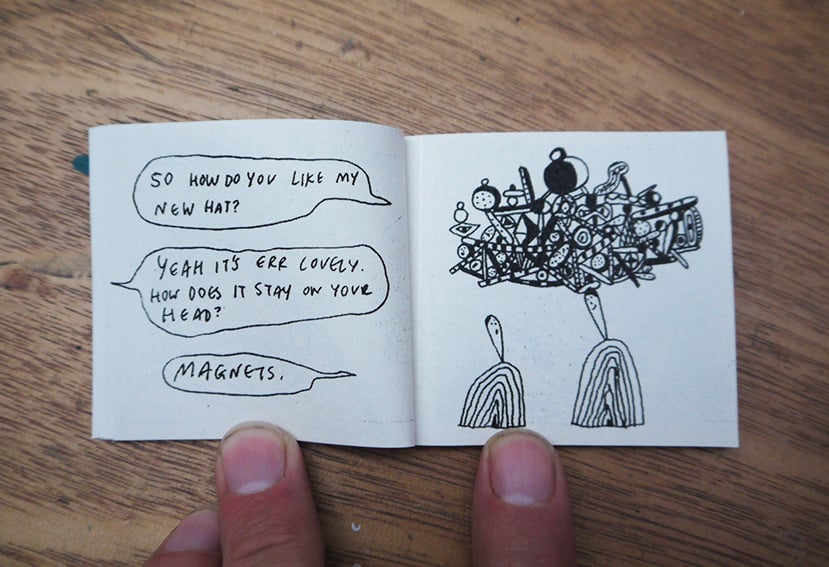 SO HOW DO YOU LIKE MY
NEW HAT?
YEAH IT'S ERR LOVELY.
HOW DOES IT STAY ON YOUR
HEAD?
MAGNETS.